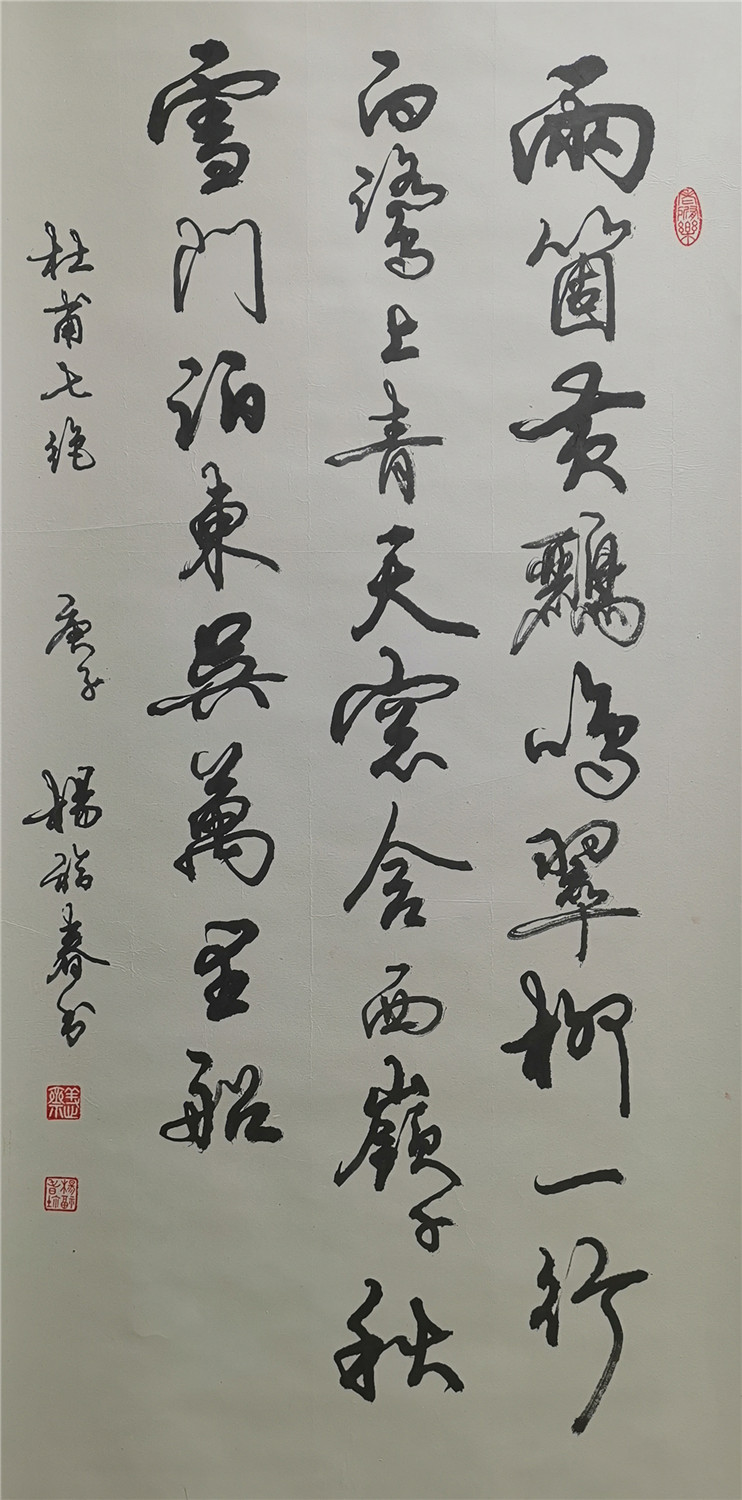 兩箇黄鸝鳴翠柳一行
白鷺上青天窓含西嶺千秋
雪門泊東吳萬里船
杜甫七絶 庚子 楊福春书